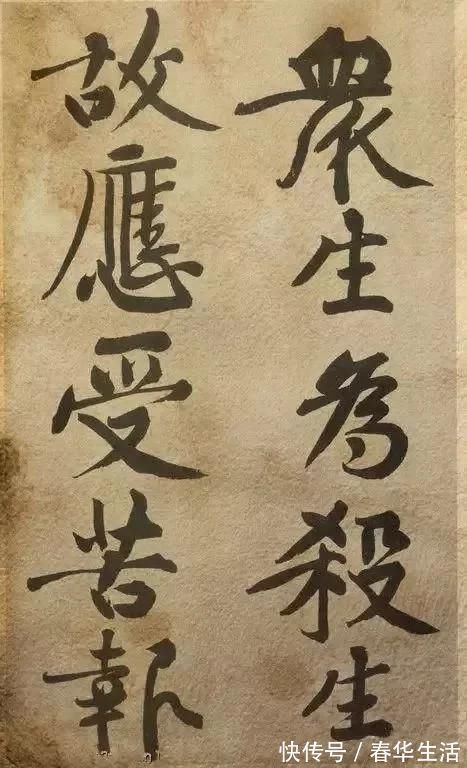 衆生為殺生
故應受苦報
快传号/春华生活